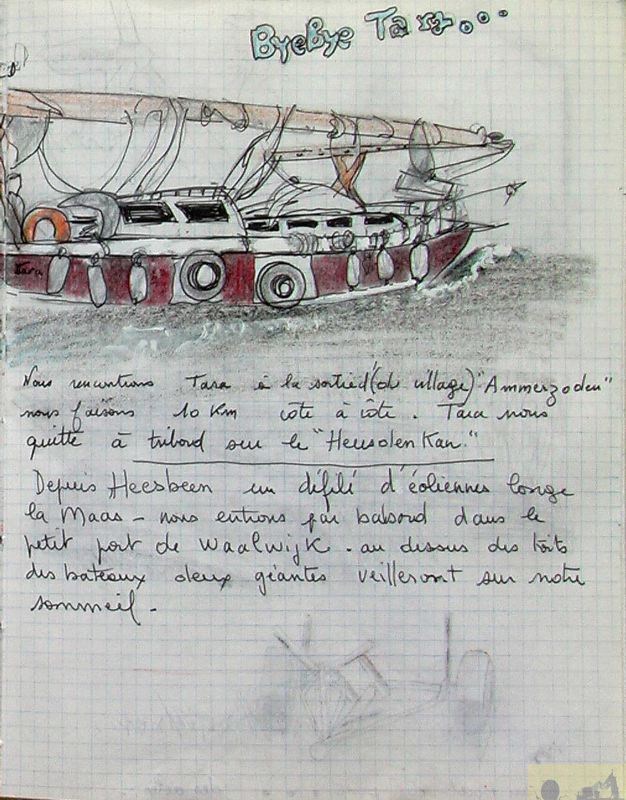 ByeBye Tara...
Tara
Nous rencontrons Tara à la sortie (du village) "Ammerzoden"
nous faisons 10 Km côte à côte. Tara nous
quitte à tribord sur le "Heusden Kan."
Depuis Heesbeen un défilé d'éoliennes longe
la Maas - nous entrons par babord dans le
petit port de Waalwijk. au dessus des toits
des bateaux deux géantes veilleront sur notre
sommeil.